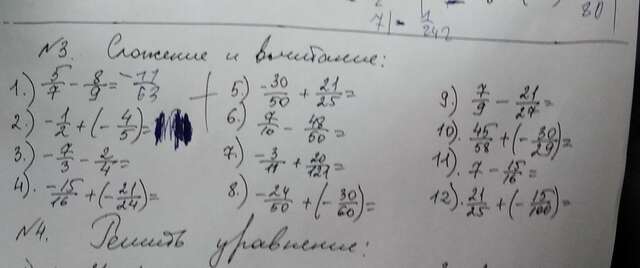 7) - 1/242
80
№3. Сложение и вычитание:
1.) 5/7 - 8/9 = -11/63
2.) -1/2 + (-4/5) =
3.) -7/3 - 2/4 =
4). -15/16 + (-21/24) =
5.) -30/50 + 21/25 =
6.) 7/10 - 48/50 =
7.) -3/11 + 20/121 =
8.) -24/50 + (-30/60) =
9.) 7/9 - 21/27 =
10.) 45/58 + (-30/29) =
11). 7 - 15/16 =
12). 21/25 + (-15/100) =
№4. Решить уравнение: